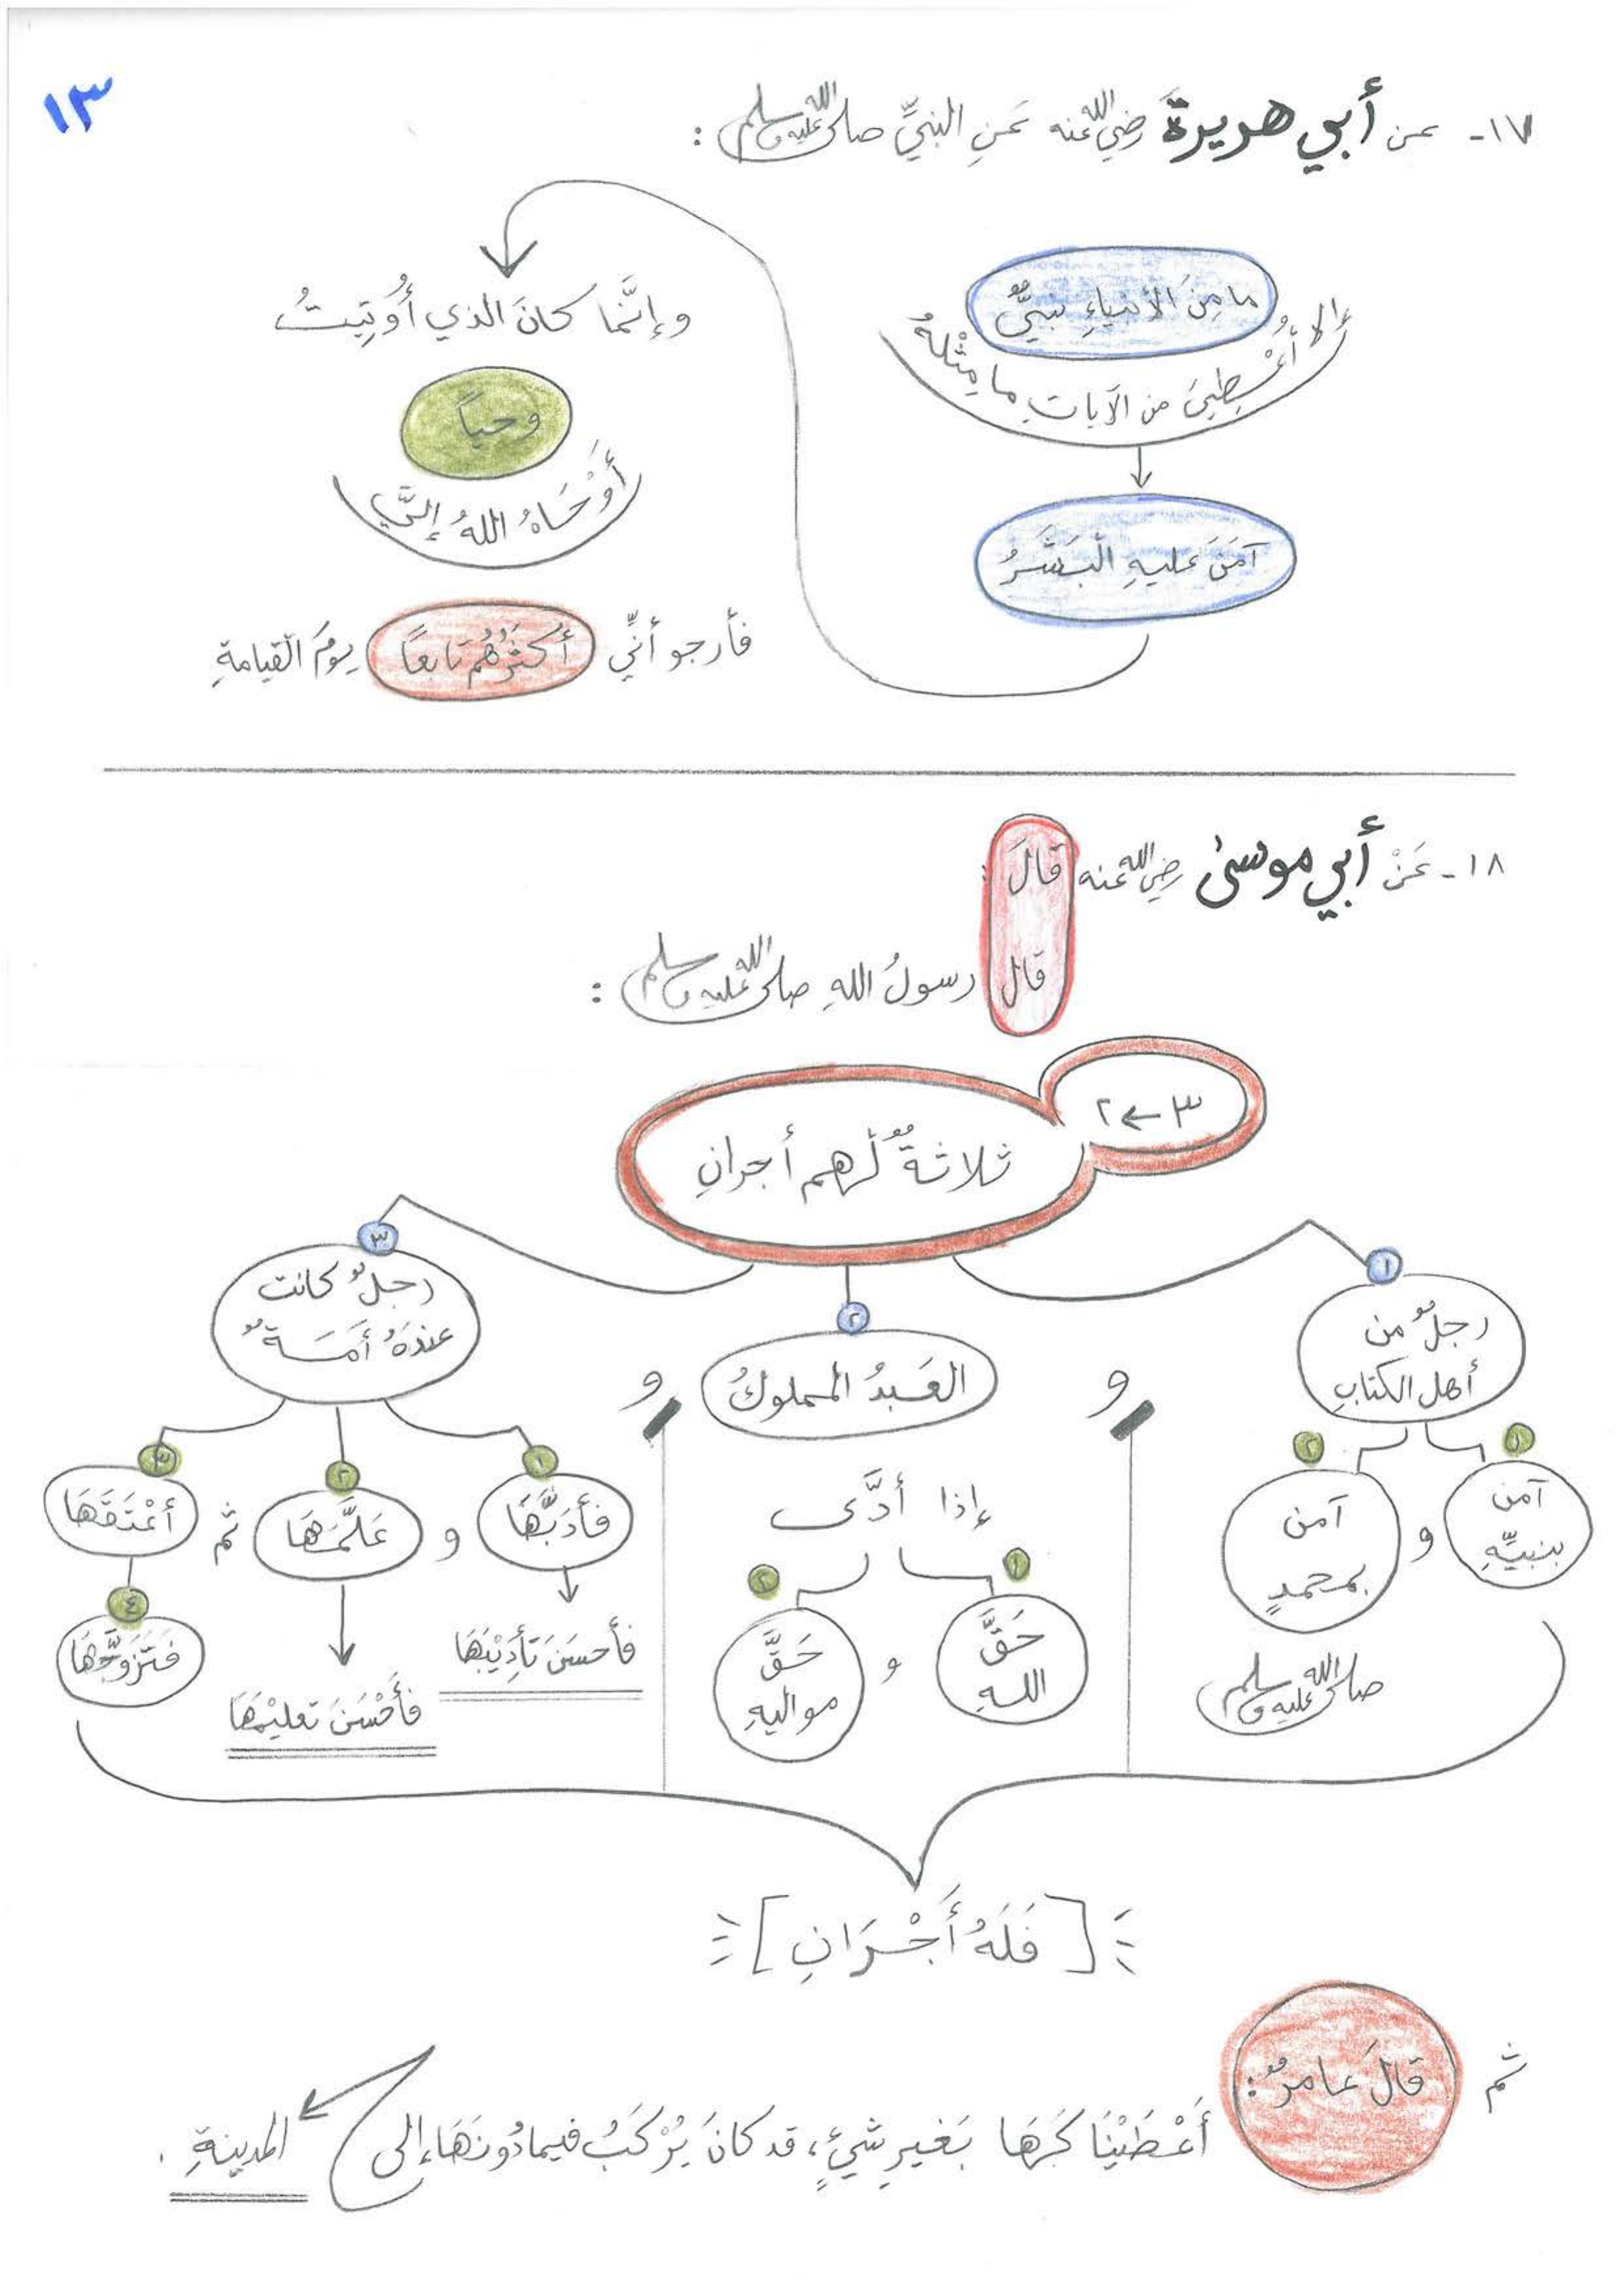 ١٣
١٧- عن أبي هريرةَ رضي الله عنه عَنِ النبيِّ صلى الله عليه وسلم :
ما مِنَ الأنبياءِ نبيٌّ
إلا أُعْطِيَ من الآياتِ ما مِثْلهُ
آمَنَ عليهِ الْبَشَرُ
وإنَّما كانَ الذي أُوتِيتُ
وحياً
أَوْحَاهُ اللهُ إليَّ
فأرجو أنِّي أكثَرُهُم تابعاً يومَ القيامةِ
١٨- عَنْ أبي موسىٰ رضي الله عنه قالَ :
قال رسولُ اللهِ صلى الله عليه وسلم :
٣ ← ٢
ثلاثةٌ لَهم أجرانِ
١
رجلٌ من
أهلِ الكتابِ
١
آمن
بنبيِّهِ
و
٢
آمن
بمحمدٍ
صلى الله عليه وسلم
و
٢
العَبدُ المملوكُ
إذا أدَّى
١
حَقَّ
اللهِ
و
٢
حَقَّ
مواليهِ
و
٣
رجلٌ كانت
عندَهُ أَمَةٌ
١
فأدَبَّهَا
فأحسَنَ تَأدِيْبَهَا
و
٢
عَلَّمَهَا
فأَحْسَنَ تعليْمَهَا
ثم
٣
أعْتَقَهَا
٤
فتَزَوَّجَهَا
[فَلَهُ أَجْرَانِ]
ثم
قالَ عامرٌ :
أَعْطَيْنَا كَهَا بَغَيرِ شيْءٍ، قد كانَ يُرْكَبُ فيما دُونَهَا إلى المدينةِ .